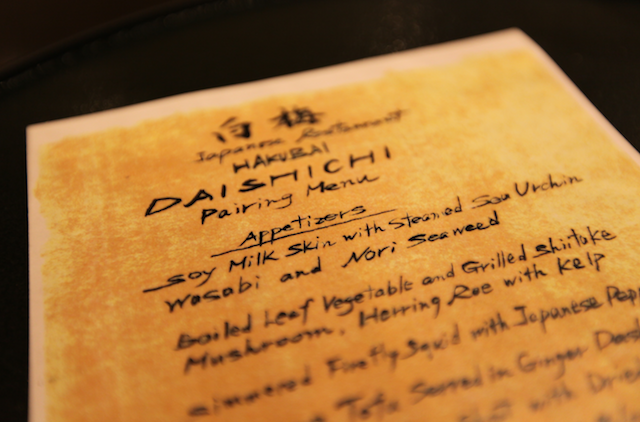 白梅
Japanese Restaurant
HAKUBAI
DAISHICHI
Pairing Menu
Appetizers
Soy Milk Skin with Steamed Sea Urchin
Wasabi and Nori Seaweed
Boiled Leaf Vegetable and Grilled Shiitake
Mushroom, Herring Roe with Kelp
Simmered Firefly Squid with Japanese
Tofu Served in Ginger
with Dried